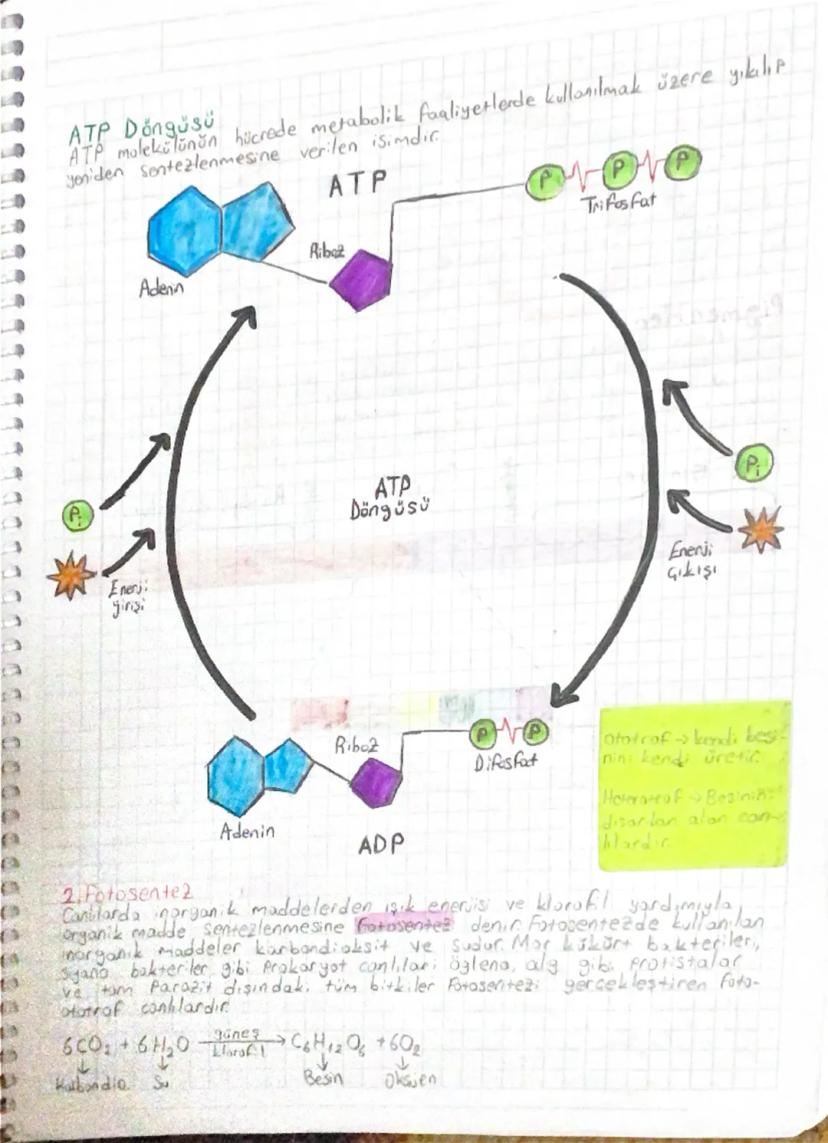 ATP Döngüsü
ATP molekülünün hücrede metabolik faaliyetlerde kullanılmak üzere yıkılıp
yeniden sentezlenmesine verilen isimdir.
ATP
P P P
Trifosfat
Riboz
Adenin
Pigmentler
Pi
Pi
ATP
Döngüsü
Enerji
girişi
Enerji
çıkışı
P P
Riboz
Difosfat
Adenin
ADP
ototrof → kendi besi-
nini kendi üretir.
Heterotrof → Besinini
dışardan alan can-
lılardır.
2. Fotosentez
Canlılarda inorganik maddelerden ışık enerjisi ve klorofil yardımıyla
organik madde sentezlenmesine fotosentez denir. Fotosentezde kullanılan
inorganik maddeler karbondioksit ve sudur. Mor kükürt bakterileri,
siyano bakteriler gibi prokaryot canlılar; öglena, alg gibi protistalar
ve tam parazit dışındaki tüm bitkiler fotosentezi gerçekleştiren foto-
ototrof canlılardır.
6CO2 + 6H2O güneş klorofil → C6H12O6 + 6O2
↓ ↓ ↓ ↓
Karbondio. Su Besin Oksijen